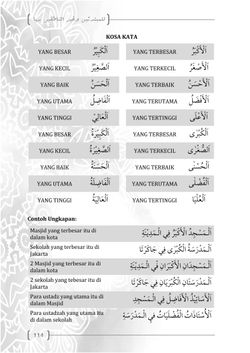 للمبتدئين وغير الناطقين بها
KOSA KATA
YANG BESAR اَلْكَبِيْرُ YANG TERBESAR اَلْأَكْبَرُ
YANG KECIL اَلصَّغِيْرُ YANG TERKECIL اَلْأَصْغَرُ
YANG BAIK اَلْحَسَنُ YANG TERBAIK اَلْأَحْسَنُ
YANG UTAMA اَلْفَاضِلُ YANG TERUTAMA اَلْأَفْضَلُ
YANG TINGGI اَلْعَالِيْ YANG TERTINGGI اَلْأَعْلَى
YANG BESAR اَلْكَبِيْرَةُ YANG TERBESAR اَلْكُبْرَى
YANG KECIL اَلصَّغِيْرَةُ YANG TERKECIL اَلصُّغْرَى
YANG BAIK اَلْحَسَنَةُ YANG TERBAIK اَلْحُسْنَى
YANG UTAMA اَلْفَاضِلَةُ YANG TERUTAMA اَلْفُضْلَى
YANG TINGGI اَلْعَالِيَةُ YANG TERTINGGI اَلْعُلْيَا
Contoh Ungkapan:
Masjid yang terbesar itu di
dalam kota
اَلْمَسْجِدُ الْأَكْبَرُ فِي الْمَدِيْنَةِ
Sekolah yang terbesar itu di
Jakarta
اَلْمَدْرَسَةُ الْكُبْرَى فِي جَاكَرْتَا
2 Masjid yang terbesar itu di
dalam kota
اَلْمَسْجِدَانِ الْأَكْبَرَانِ فِي الْمَدِيْنَةِ
2 sekolah yang tebesar itu di
Jakarta
اَلْمَدْرَسَتَانِ الْكُبْرَيَانِ فِي جَاكَرْتَا
Para ustadz yang utama itu di
dalam Masjid
اَلْأَسَاتِيْذُ الْأَفَاضِلُ فِي الْمَسْجِدِ
Para ustadzah yang utama itu
di dalam sekolah
اَلْأُسْتَاذَاتُ الْفُضْلَيَاتُ فِي الْمَدْرَسَةِ
114